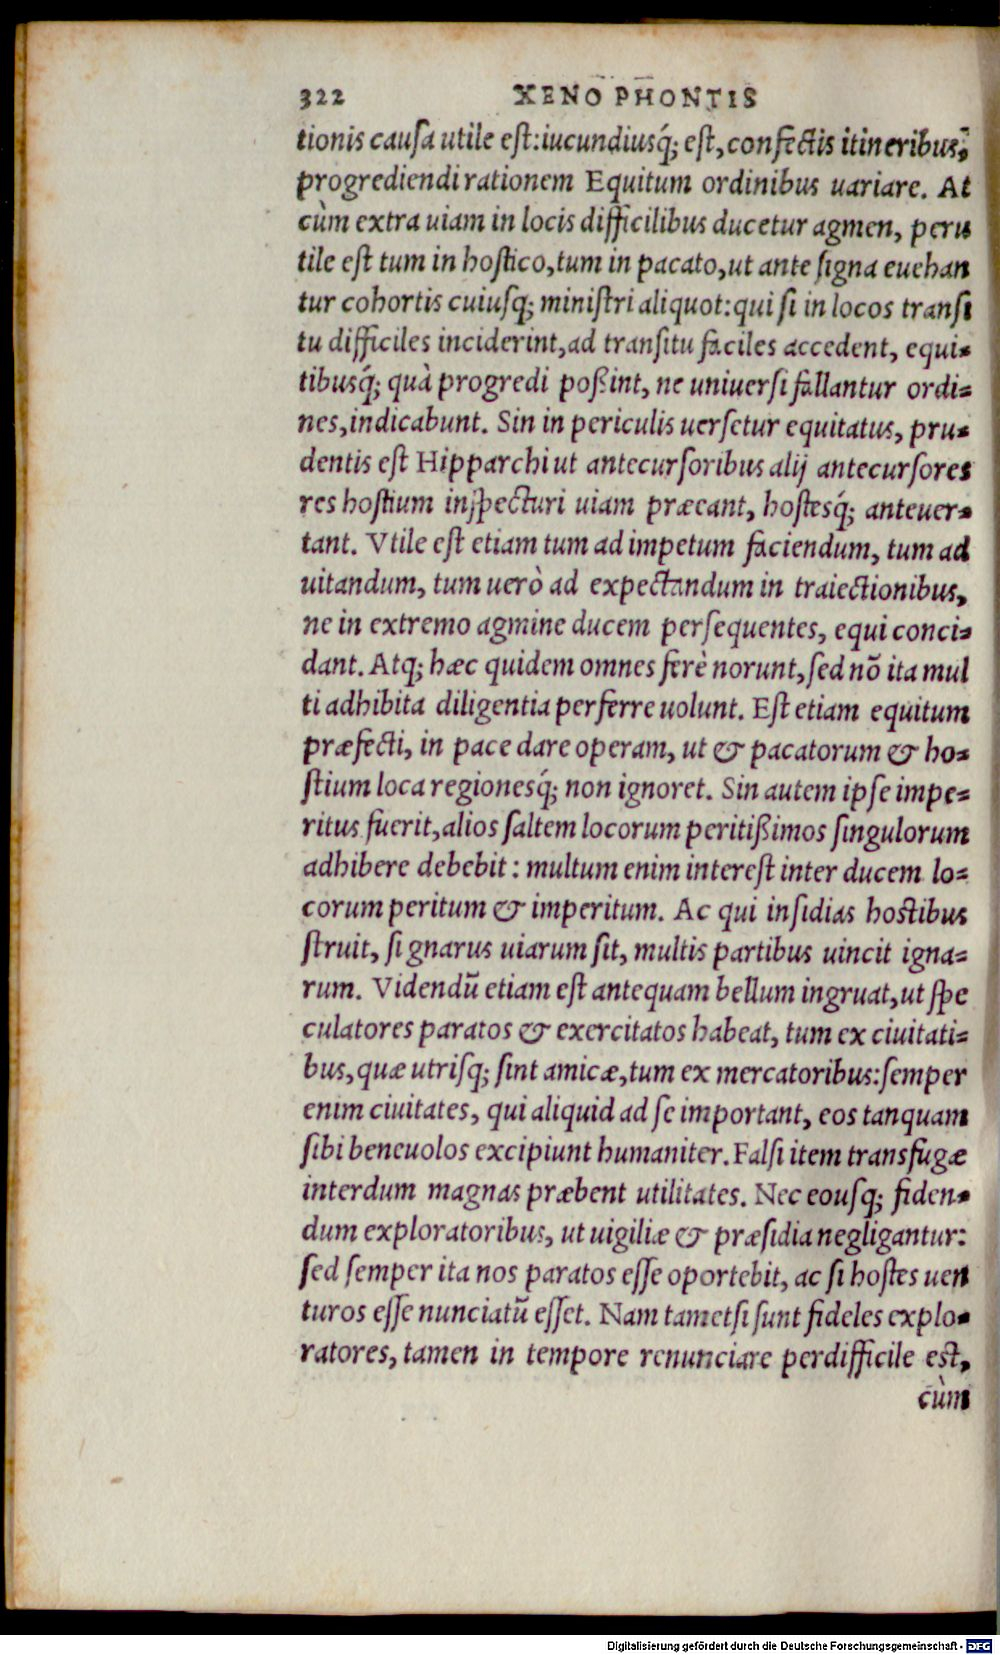 322 XENOPHONTIS
tionis causa utile est: iucundiusq́; est, confectis itineribus,
progrediendi rationem Equitum ordinibus uariare. At
cùm extra uiam in locis difficilibus ducetur agmen, peru
tile est tum in hostico, tum in pacato, ut ante signa euehan
tur cohortis cuiusq; ministri aliquot: qui si in locos transi
tu difficiles inciderint, ad transitu faciles accedent, equi-
tibusq́; quà progredi poßint, ne uniuersi fallantur ordi-
nes, indicabunt. Sin in periculis uersetur equitatus, pru-
dentis est Hipparchi ut antecursoribus alij antecursores
res hostium inspecturi uiam præeant, hostesq́; anteuer-
tant. Vtile est etiam tum ad impetum faciendum, tum ad
uitandum, tum uerò ad expectandum in traiectionibus,
ne in extremo agmine ducem persequentes, equi conci-
dant. Atq; hæc quidem omnes ferè norunt, sed nõ ita mul
ti adhibita diligentia perferre uolunt. Est etiam equitum
præfecti, in pace dare operam, ut & pacatorum & ho-
stium loca regionesq́; non ignoret. Sin autem ipse impe-
ritus fuerit, alios saltem locorum peritißimos singulorum
adhibere debebit: multum enim interest inter ducem lo-
corum peritum & imperitum. Ac qui insidias hostibus
struit, si gnarus uiarum sit, multis partibus uincit igna-
rum. Videndũ etiam est antequam bellum ingruat, ut spe
culatores paratos & exercitatos habeat, tum ex ciuitati-
bus, quæ utrisq; sint amicæ, tum ex mercatoribus: semper
enim ciuitates, qui aliquid ad se important, eos tanquam
sibi beneuolos excipiunt humaniter. Falsi item transfugæ
interdum magnas præbent utilitates. Nec eousq; fiden-
dum exploratoribus, ut uigiliæ & præsidia negligantur:
sed semper ita nos paratos esse oportebit, ac si hostes uen
turos esse nunciatũ esset. Nam tametsi sunt fideles explo-
ratores, tamen in tempore renunciare perdifficile est,
cùm
Digitalisierung gefördert durch die Deutsche Forschungsgemeinschaft - DFG